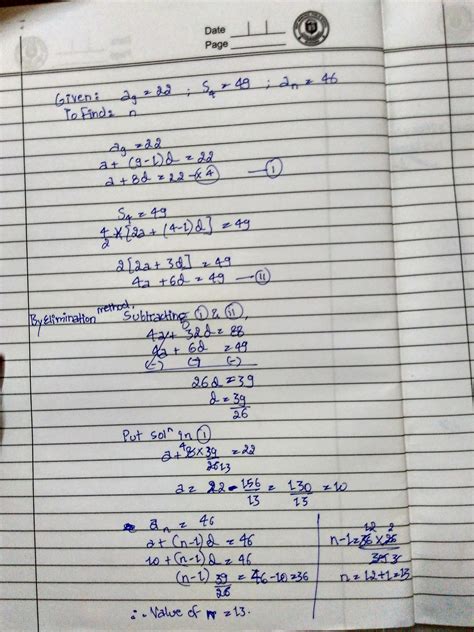 Date
Page
Given: a₉ = 22 ; S₄ = 49 ; aₙ = 46
To Find: n
a₉ = 22
a + (9-1)d = 22
a + 8d = 22 -×4 — I
S₄ = 49
4/2 × [2a + (4-1)d] = 49
2[2a + 3d] = 49
4a + 6d = 49 — II
By elimination method, Subtracting I & II,
4a + 32d = 88
4a + 6d = 49
(-) (-) (-)
26d = 39
d = 39/26
Put solⁿ in I
a + 8 × 39/26 = 22
a = 22 - 156/13 = 130/13 = 10
aₙ = 46
a + (n-1)d = 46
10 + (n-1)d = 46
(n-1) 39/26 = 46 - 10 = 36
n-1 = 36 × 26
39
n = 12+1 = 13
∴ Value of n = 13.